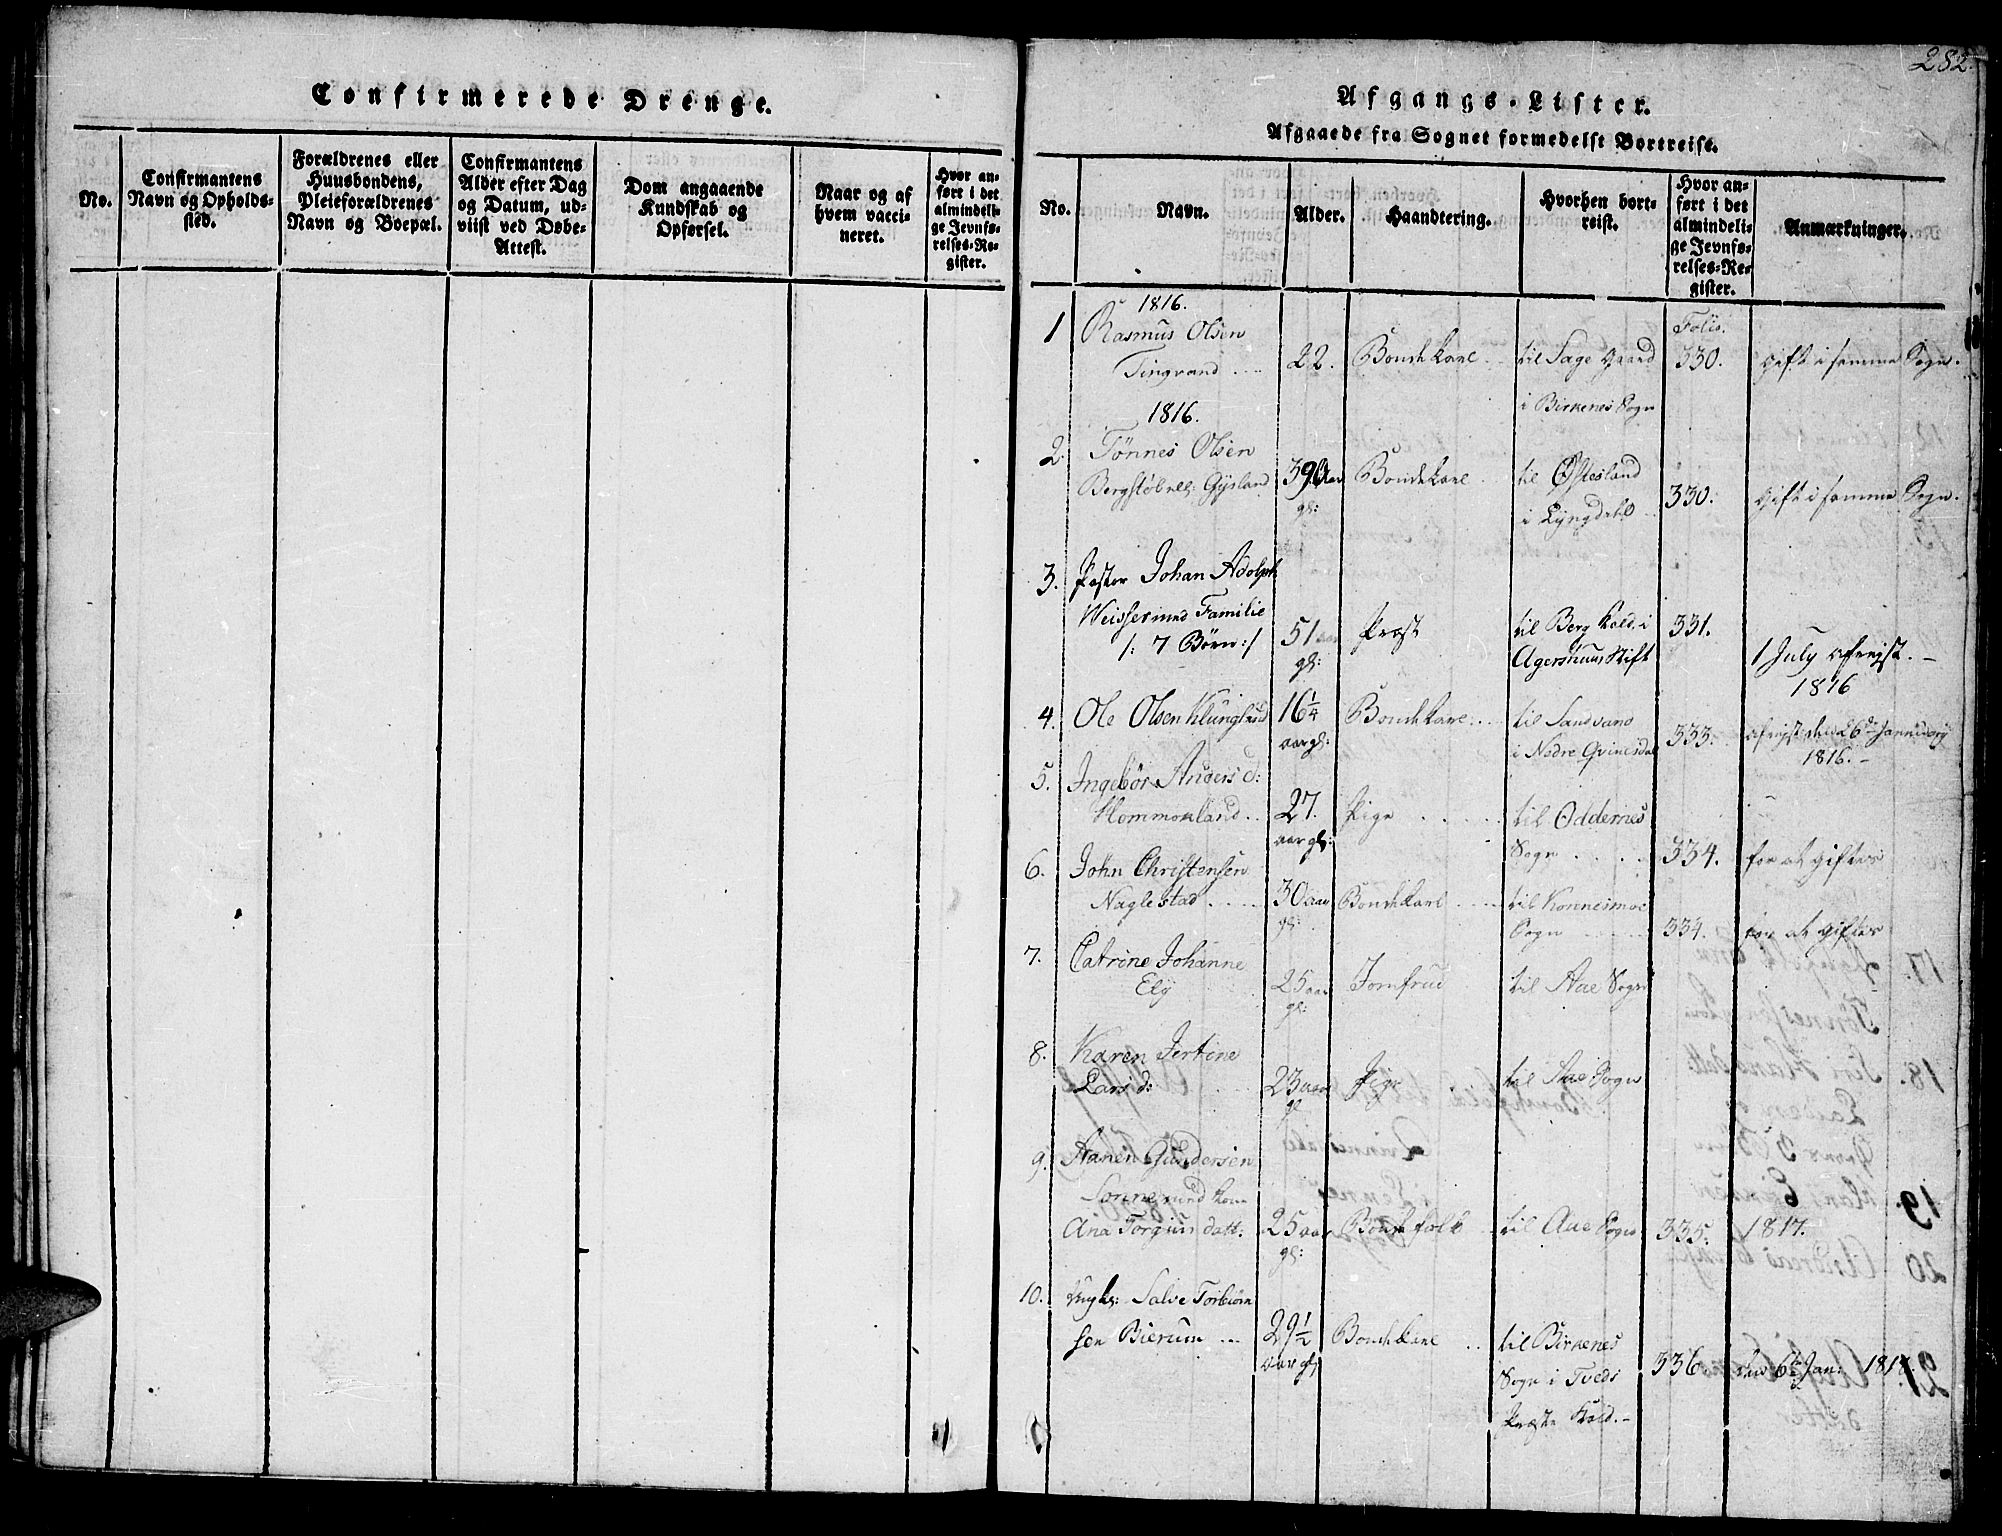 Confirmerede Drenge.
No.
Confirmantens
Navn og Opholds-
sted.
Forældrenes eller
Huusbondens,
Pleieforældrenes
Navn og Boepæl.
Confirmantens
Alder efter Dag
og Datum, ud-
viist ved Døbe-
Attest.
Dom angaaende
Kundskab og
Opførsel.
Naar og af
hvem vacci-
neret.
Hvor an-
ført i det
almindeli-
ge Jevnfø-
relses-Re-
gister.
282.
Afgangs-Lister.
Afgaaede fra Sognet formedelst Bortreise.
No.
Navn.
Alder.
Haandtering.
Hvorhen bort-
reist.
Hvor an-
ført i det
almindeli-
ge Jevnfø-
relses-Re-
gister.
Anmærkninger.
1816.
1 Rasmus Olsen
Tingvand
22. Bondekarl
til Sage Gaard
i Birkenes Sogn
Folio.
330.
gift i samme Sogn.
1816.
2. Tønnes Olsen
Bergstøl Gysland
39 Aar
gl:
Bondekarl
til Østesland
i Lyngdahl
330.
gift i samme Sogn.
3. Pastor Johan Adolph
Weisser med Familie
/: 7 Børn :/
51 aar
gl:
Præst
til Berg Kald. i
Agershuus Stift
331.
1 July afrejst.
1816
4. Ole Olsen Klunglund
16¼
aar gl:
Bondekarl
til Sandvand
i Nedre Qvinesdal
333.
afrejst den 26de Januarj
1816.
5. Ingebør Anders d:
Hommorland
27.
aar gl:
Pige
til Oddernes
Sogn
334.
for at giftes
6. John Christensen
Naglestad
30 aar
gl:
Bondekarl
til Konnesmoe
Sogn
334.
for at giftes
7. Catrine Johanne
Ely
25 aar
gl:
Jomfrue
til Aae Sogn
8. Karen Jertine
Lars d:
23 aar
gl
Pige
til Aae Sogn
9. Hanen Gundersen
Sønne med Kone
Ana Torgius datt:
25 aar
gl:
Bondefolk
til Aae Sogn
335.
1817.
10. Ungk: Salve Torbiørn
sen Bierum
29½
aar gl
Bondekarl
til Birkenes
Sogn i Tveds
Præste Kald.
336.
den 6te Jan: 1818.